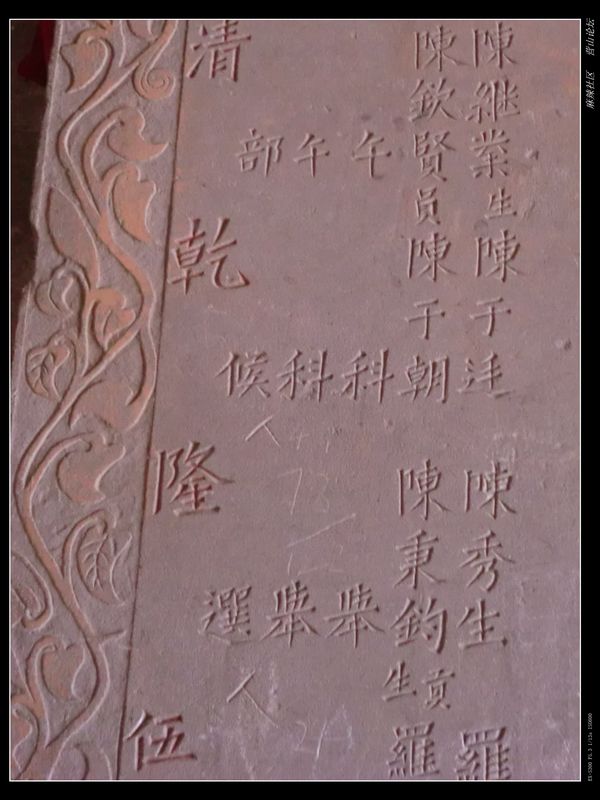 陳継業生陳于廷 陳秀生 羅
陳欽賢員陳于朝 陳秉鈞貢生 羅
午科舉
午科舉
部候選
清乾隆伍
麻辣社区 营山论坛